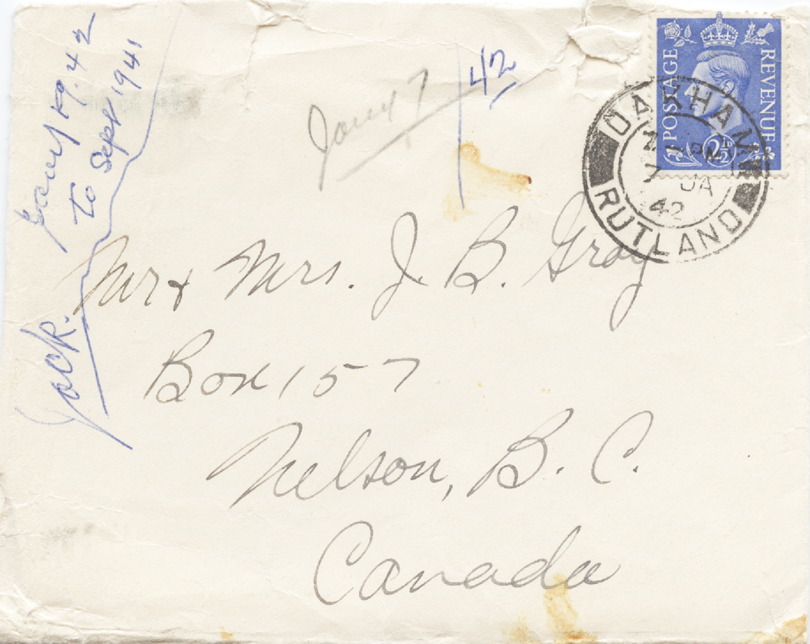 Jack.
To Sept 1941
Jany 7
42
POSTAGE REVENUE
2½
OAKHAM
7 JA
42
RUTLAND
Mr & Mrs. J. B. Gray
Box 157
Nelson, B. C.
Canada